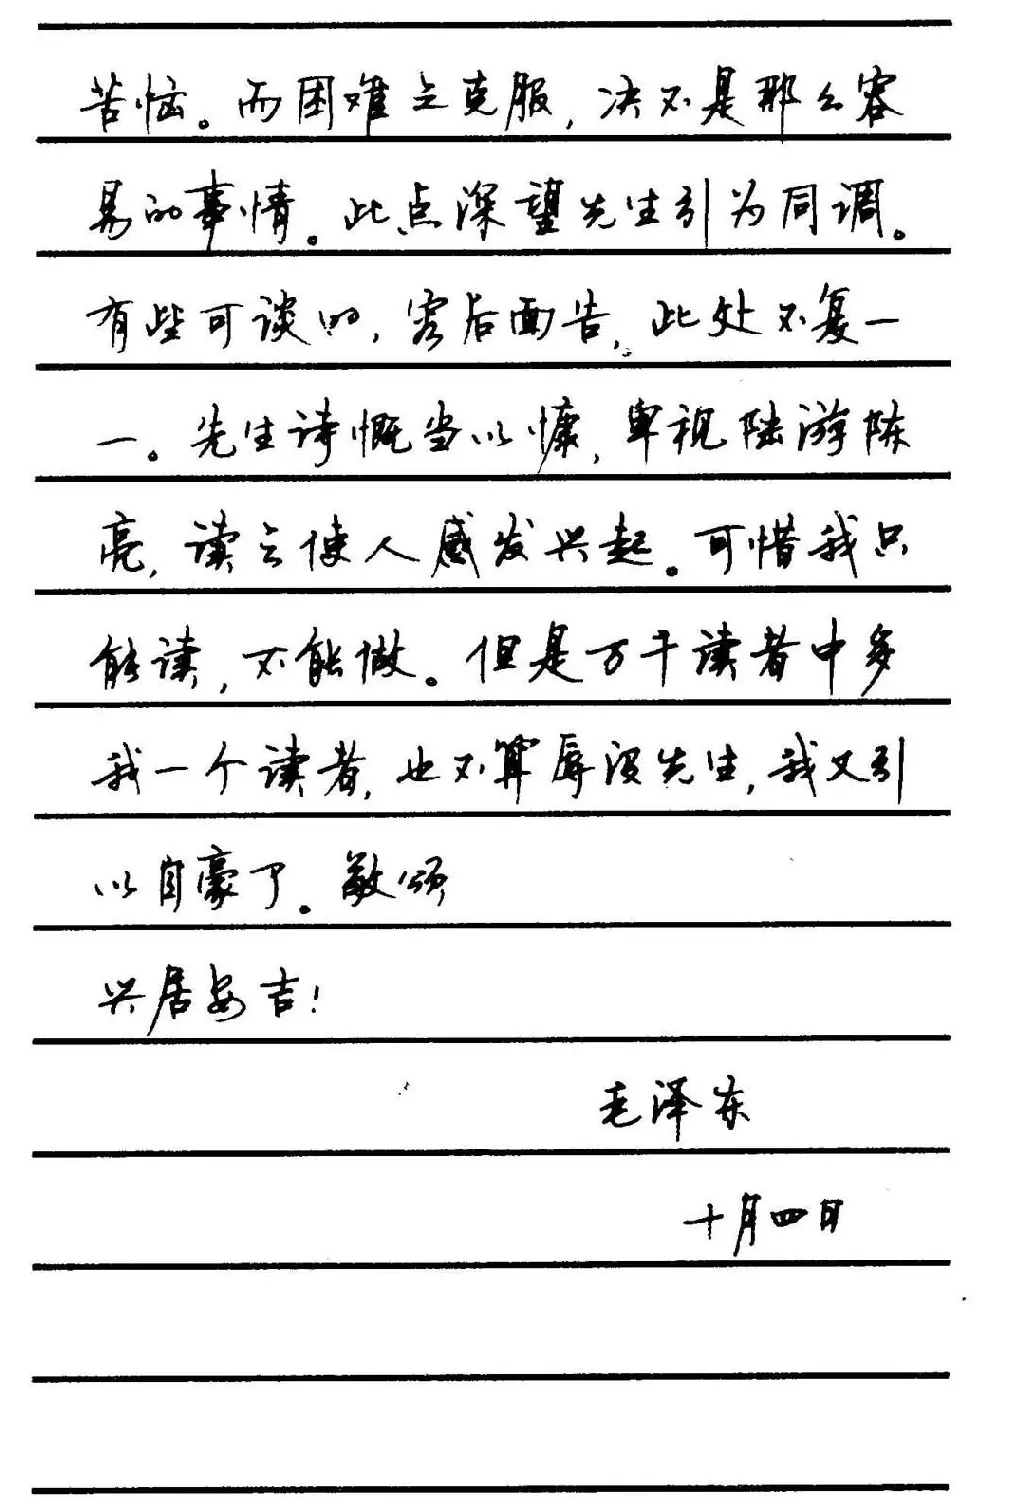 苦恼。而困难之克服，决不是那么容
易的事情。此点深望先生引为同调。
有些可谈的，容后面告，此处不复一
一。先生诗慨当以慷，卑视陆游陈
亮，读之使人感发兴起。可惜我只
能读，不能做。但是万千读者中多
我一个读者，也不算辱没先生，我又引
以自豪了。敬颂
兴居安吉！
毛泽东
十月四日